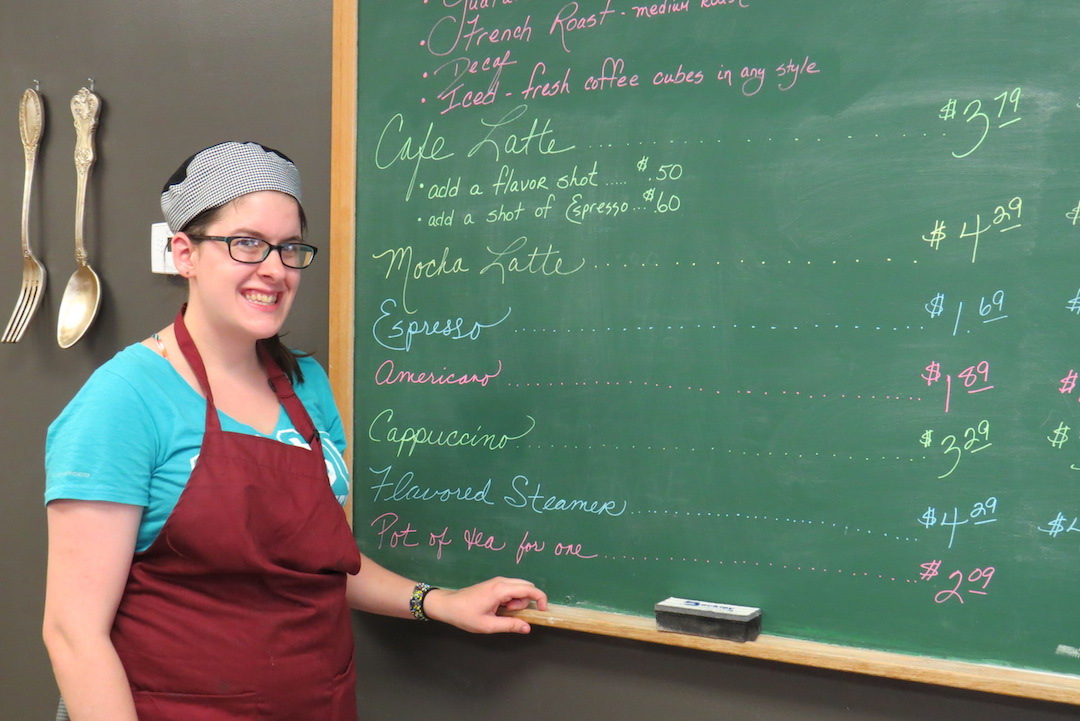 • French Roast - medium roast
• Decaf
• Iced - fresh coffee cubes in any style
Cafe Latte ........ $3.79
• add a flavor shot ..... $.50
• add a shot of Espresso... $.60
Mocha Latte ........ $4.29
Espresso ........ $1.69
Americano ........ $1.89
Cappuccino ........ $3.29
Flavored Steamer ........ $4.29
Pot of tea for one ........ $2.09